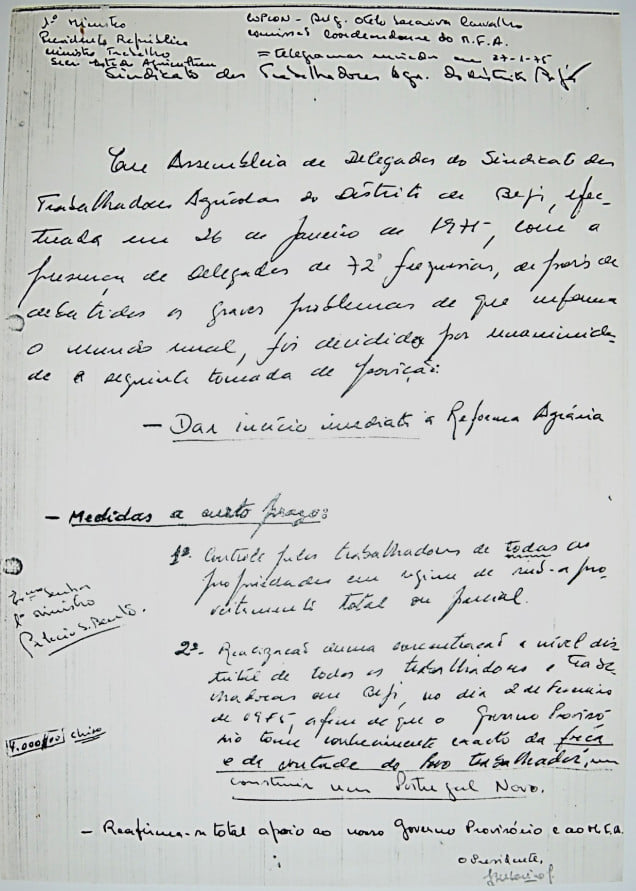 1º Ministro
Presidente República
Ministro Trabalho
COPCON - Brig. Otelo Saraiva Carvalho
Comissão Coordenadora do M.F.A.
= telegramas enviados em 27-1-75
Sindicato dos Trabalhadores Agr. do Distrito Beja
Em Assembleia de Delegados do Sindicato dos
Trabalhadores Agrícolas do Distrito de Beja, efec-
tuada em 26 de Janeiro de 1975, com a
presença de Delegados de 72 freguesias, depois de
debatidos os graves problemas de que enferma
o mundo rural, foi decidido por unanimida-
de a seguinte tomada de posição:
- Dar início imediato à Reforma Agrária
- Medidas a curto prazo:
1º- Controle pelos trabalhadores de todas as
propriedades em regime de sub-apro-
veitamento total ou parcial.
2º- Realização duma concentração a nível dis-
trital de todos os trabalhadores e traba-
lhadoras em Beja, no dia 2 de Fevereiro
de 1975, a fim de que o Governo Provisó-
rio tome conhecimento exacto da força
e da vontade do Povo trabalhador, em
construir um Portugal Novo.
- Reafirma-se total apoio ao nosso Governo Provisório e ao M.F.A.
O Presidente,
Senhor
1º Ministro
Palácio S. Bento.